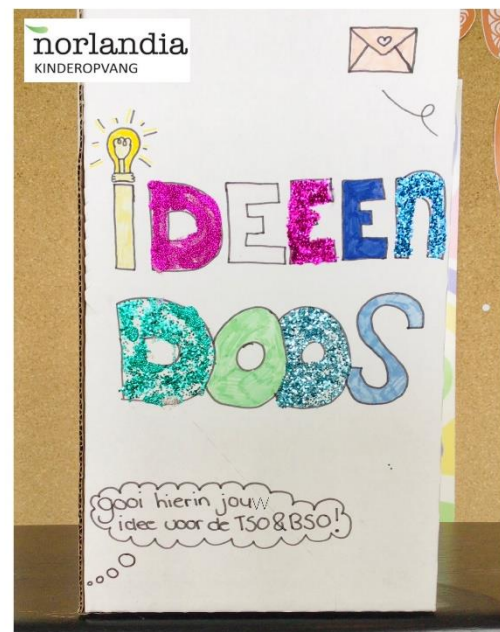 norlandia
KINDEROPVANG
iDEEEN
DOOS
gooi hierin jouw
idee voor de TSO & BSO!